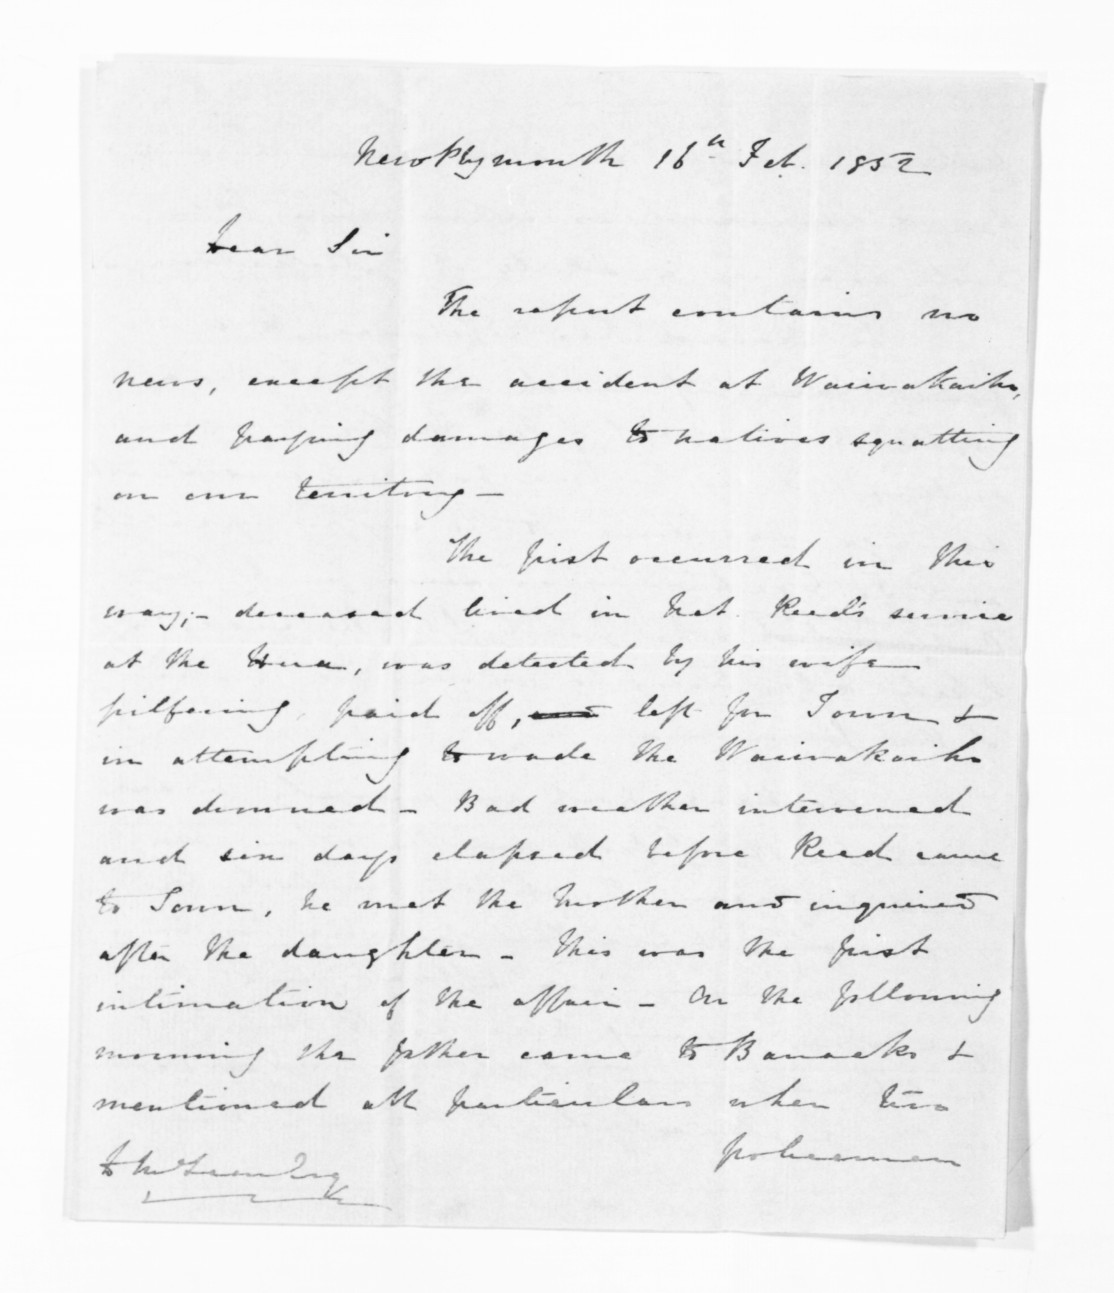 New Plymouth 16th Feb. 1852
Dear Sir
The report contains no
news, except the accident at Waiwakaiho,
and paying damages to natives squatting
on our territory —
The first occurred in this
way; — deceased lived in Nat. Reed's service
at the Hua, was detected by his wife
pilfering, paid off, left for Town &
in attempting to wade the Waiwakaiho
was drowned — Bad weather intervened
and six days elapsed before Reed came
to Town, he met the Mother and inquired
after the daughter — This was the first
intimation of the affair — On the following
morning the father came to Barracks &
mentioned all particulars when two
policemen
McLean Esq